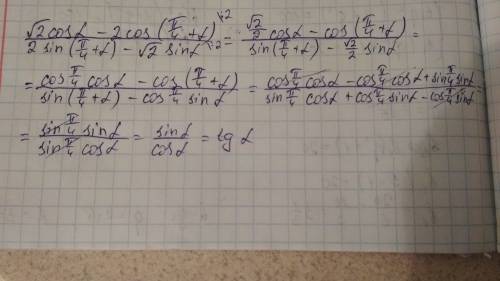 (√2 cosα − 2 cos(π/4 + α))/(2 sin(π/4 + α) − √2 sinα) \:2 \:2 = (√2/2 cosα − cos(π/4 + α))/(sin(π/4 + α) − √2/2 sinα) =
= (cos π/4 cosα − cos(π/4 + α))/(sin(π/4 + α) − cos π/4 sinα) = (cos π/4 cosα − cos π/4 cosα + sin π/4 sinα)/(sin π/4 cosα + cos π/4 sinα − cos π/4 sinα) =
= (sin π/4 sinα)/(sin π/4 cosα) = sinα/cosα = tg α